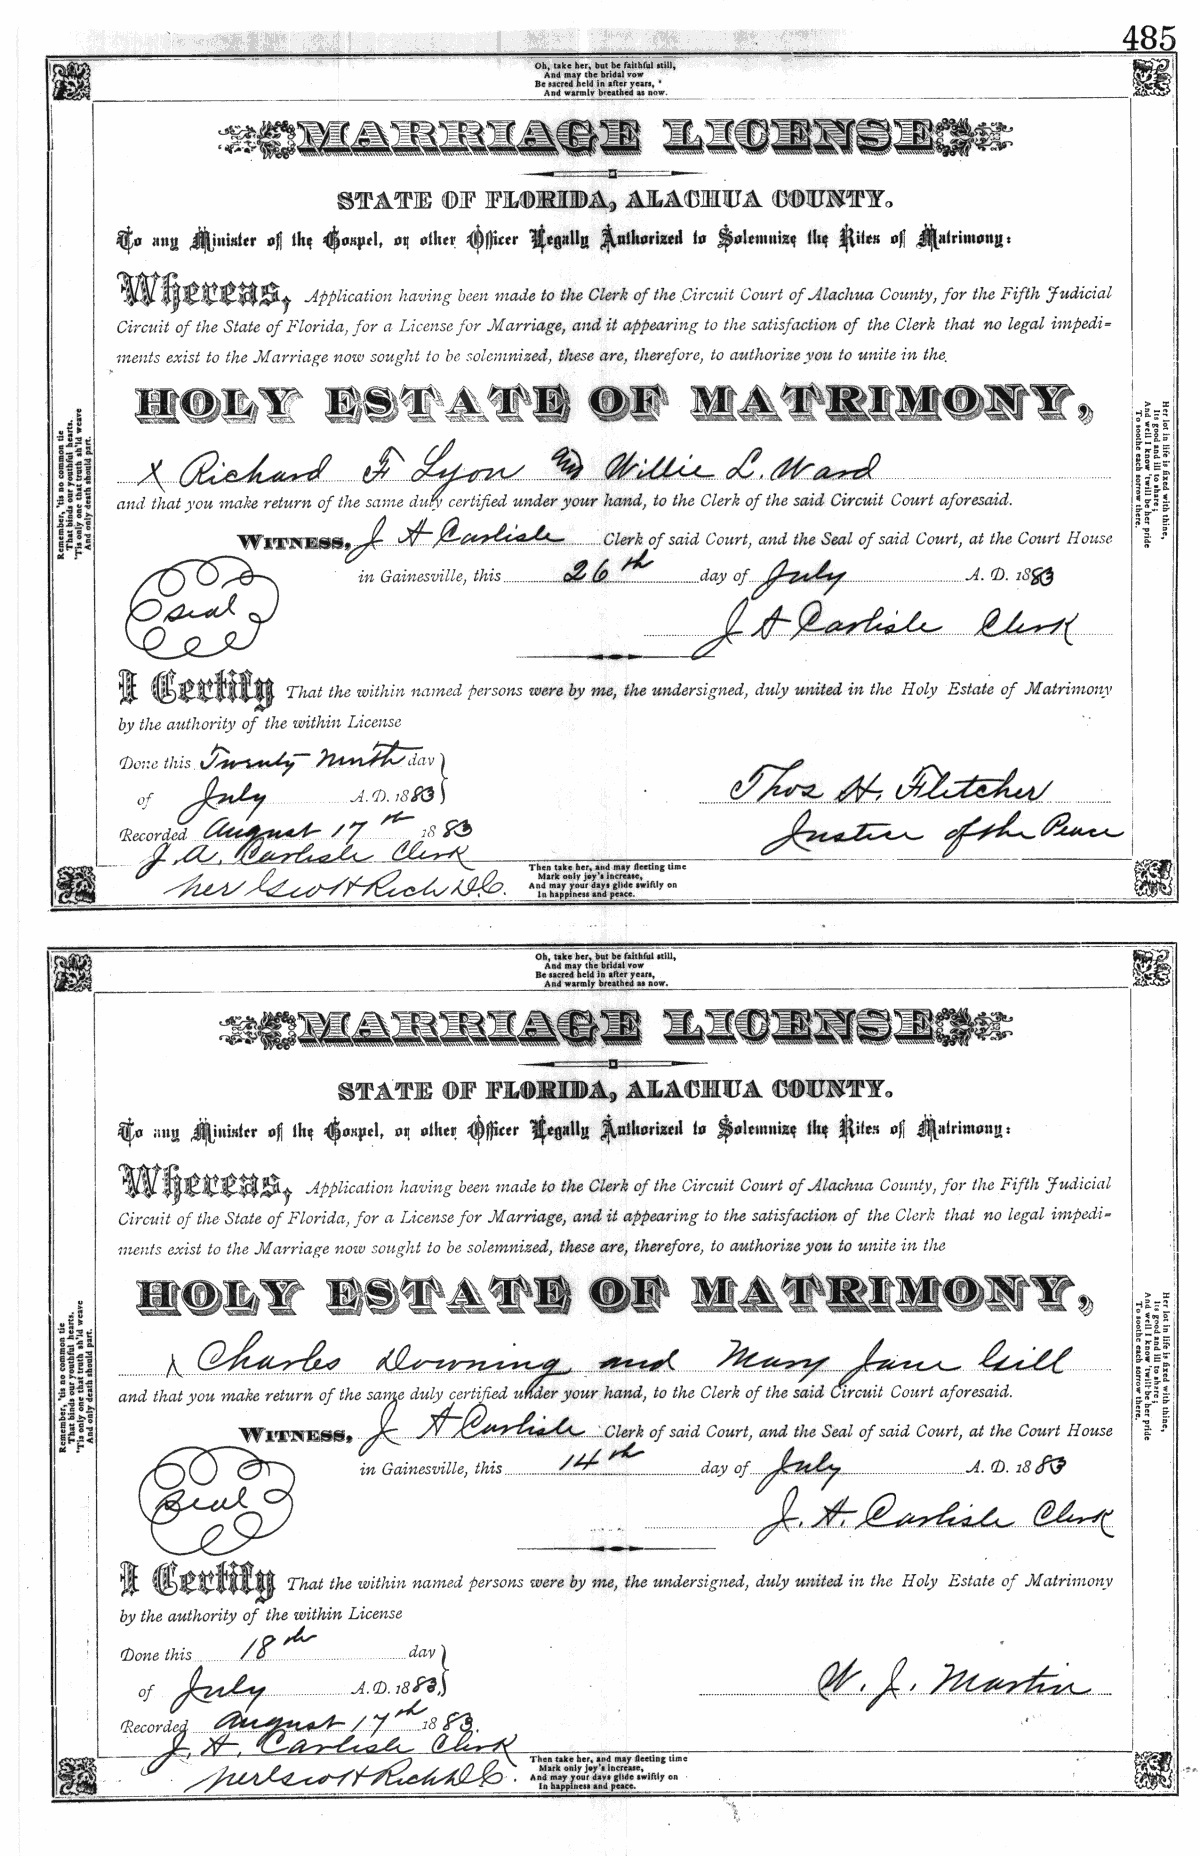 485
Oh, take her, but be faithful still,
And may the bridal vow
Be sacred held in after years,
And warmly breathed as now.
MARRIAGE LICENSE
STATE OF FLORIDA, ALACHUA COUNTY.
To any Minister of the Gospel, or other Officer Legally Authorized to Solemnize the Rites of Matrimony:
Whereas, Application having been made to the Clerk of the Circuit Court of Alachua County, for the Fifth Judicial
Circuit of the State of Florida, for a License for Marriage, and it appearing to the satisfaction of the Clerk that no legal impedi=
ments exist to the Marriage now sought to be solemnized, these are, therefore, to authorize you to unite in the
HOLY ESTATE OF MATRIMONY,
X Richard F Lyon and Willie L. Ward
and that you make return of the same duly certified under your hand, to the Clerk of the said Circuit Court aforesaid.
WITNESS, J A Carlisle Clerk of said Court, and the Seal of said Court, at the Court House
in Gainesville, this 26th day of July A. D. 1883
seal
J A Carlisle Clerk
I Certify That the within named persons were by me, the undersigned, duly united in the Holy Estate of Matrimony
by the authority of the within License
Done this Twenty ninth day
of July A. D. 1883
Thos H. Fletcher
Recorded August 17th 1883
Justice of the Peace
J. A. Carlisle Clerk
Per Geo H Rich D.C.
Then take her, and may fleeting time
Mark only joy's increase,
And may your days glide swiftly on
In happiness and peace.
Remember, 'tis no common tie
That binds our youthful hearts.
'Tis only one that truth sh'ld weave
And only death should part.
Her lot in life is fixed with thine,
Its good and ill to share;
And well I know 'twill be her pride
To soothe each sorrow there.
Oh, take her, but be faithful still,
And may the bridal vow
Be sacred held in after years,
And warmly breathed as now.
MARRIAGE LICENSE
STATE OF FLORIDA, ALACHUA COUNTY.
To any Minister of the Gospel, or other Officer Legally Authorized to Solemnize the Rites of Matrimony:
Whereas, Application having been made to the Clerk of the Circuit Court of Alachua County, for the Fifth Judicial
Circuit of the State of Florida, for a License for Marriage, and it appearing to the satisfaction of the Clerk that no legal impedi=
ments exist to the Marriage now sought to be solemnized, these are, therefore, to authorize you to unite in the
HOLY ESTATE OF MATRIMONY,
X Charles Downing and Mary Jane Gill
and that you make return of the same duly certified under your hand, to the Clerk of the said Circuit Court aforesaid.
WITNESS, J A Carlisle Clerk of said Court, and the Seal of said Court, at the Court House
in Gainesville, this 14th day of July A. D. 1883
Seal
J. A. Carlisle Clerk
I Certify That the within named persons were by me, the undersigned, duly united in the Holy Estate of Matrimony
by the authority of the within License
Done this 18th day
of July A. D. 1883.
W. J. Martin
Recorded August 17th 1883.
J. A. Carlisle Clerk
Per Geo H Rich D C.
Then take her, and may fleeting time
Mark only joy's increase,
And may your days glide swiftly on
In happiness and peace.
Remember, 'tis no common tie
That binds our youthful hearts.
'Tis only one that truth sh'ld weave
And only death should part.
Her lot in life is fixed with thine,
Its good and ill to share;
And well I know 'twill be her pride
To soothe each sorrow there.